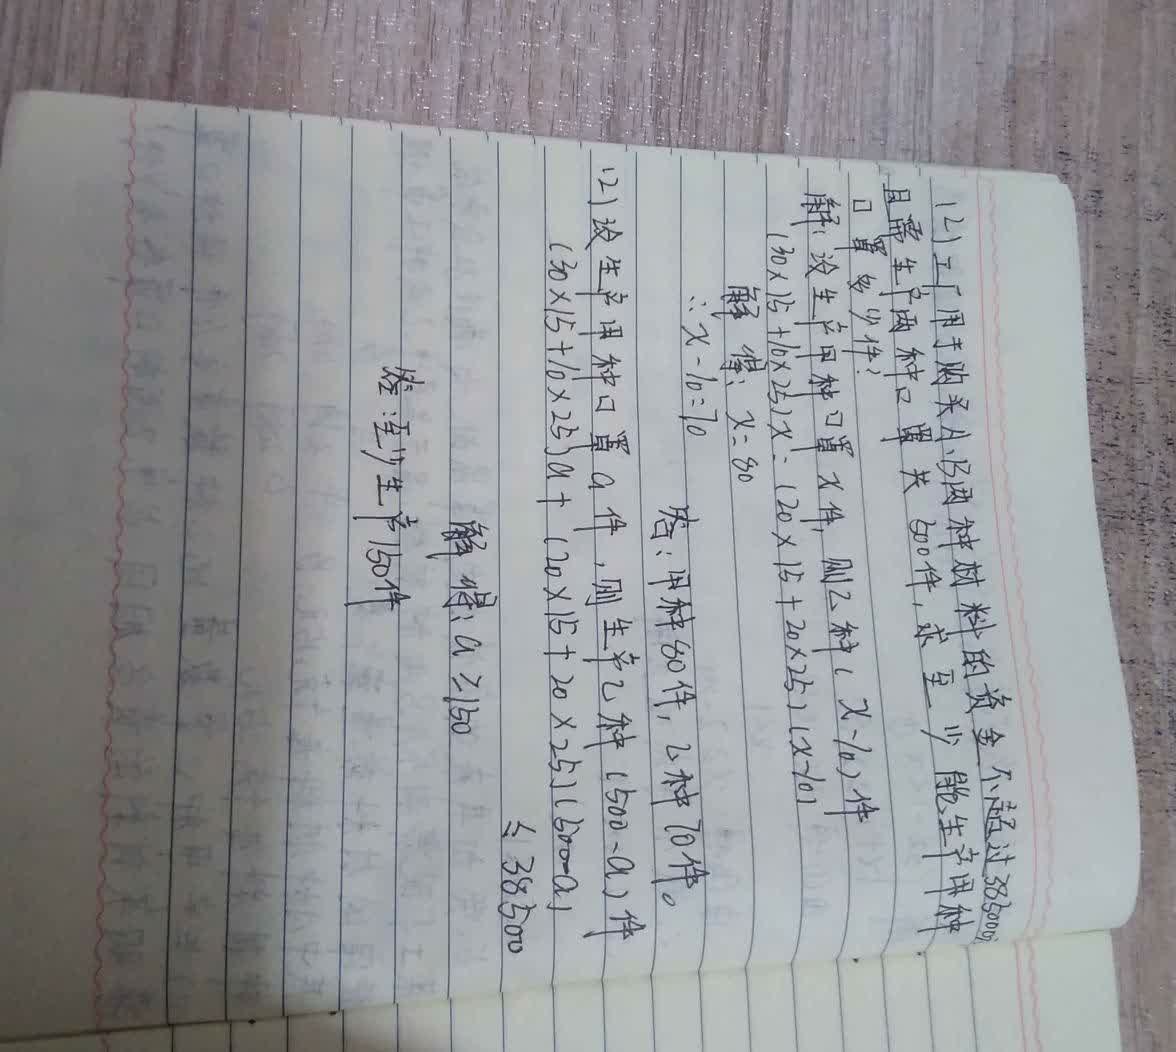 (2)工厂用于购买A、B两种材料的资金不超过38500元
且需生产两种口罩共500件,求至少能生产甲种
口罩多少件?
解:设生产甲种口罩x件,则乙种(x-10)件
(30×15+10×25)x=(20×15+20×25)(x-10)
解得:x=80
∴x-10=70
答:甲种80件,乙种70件。
(2)设生产甲种口罩a件,则生产乙种(500-a)件
(30×15+10×25)a+(20×15+20×25)(500-a)
≤38500
解得:a≥150
答:至少生产150件